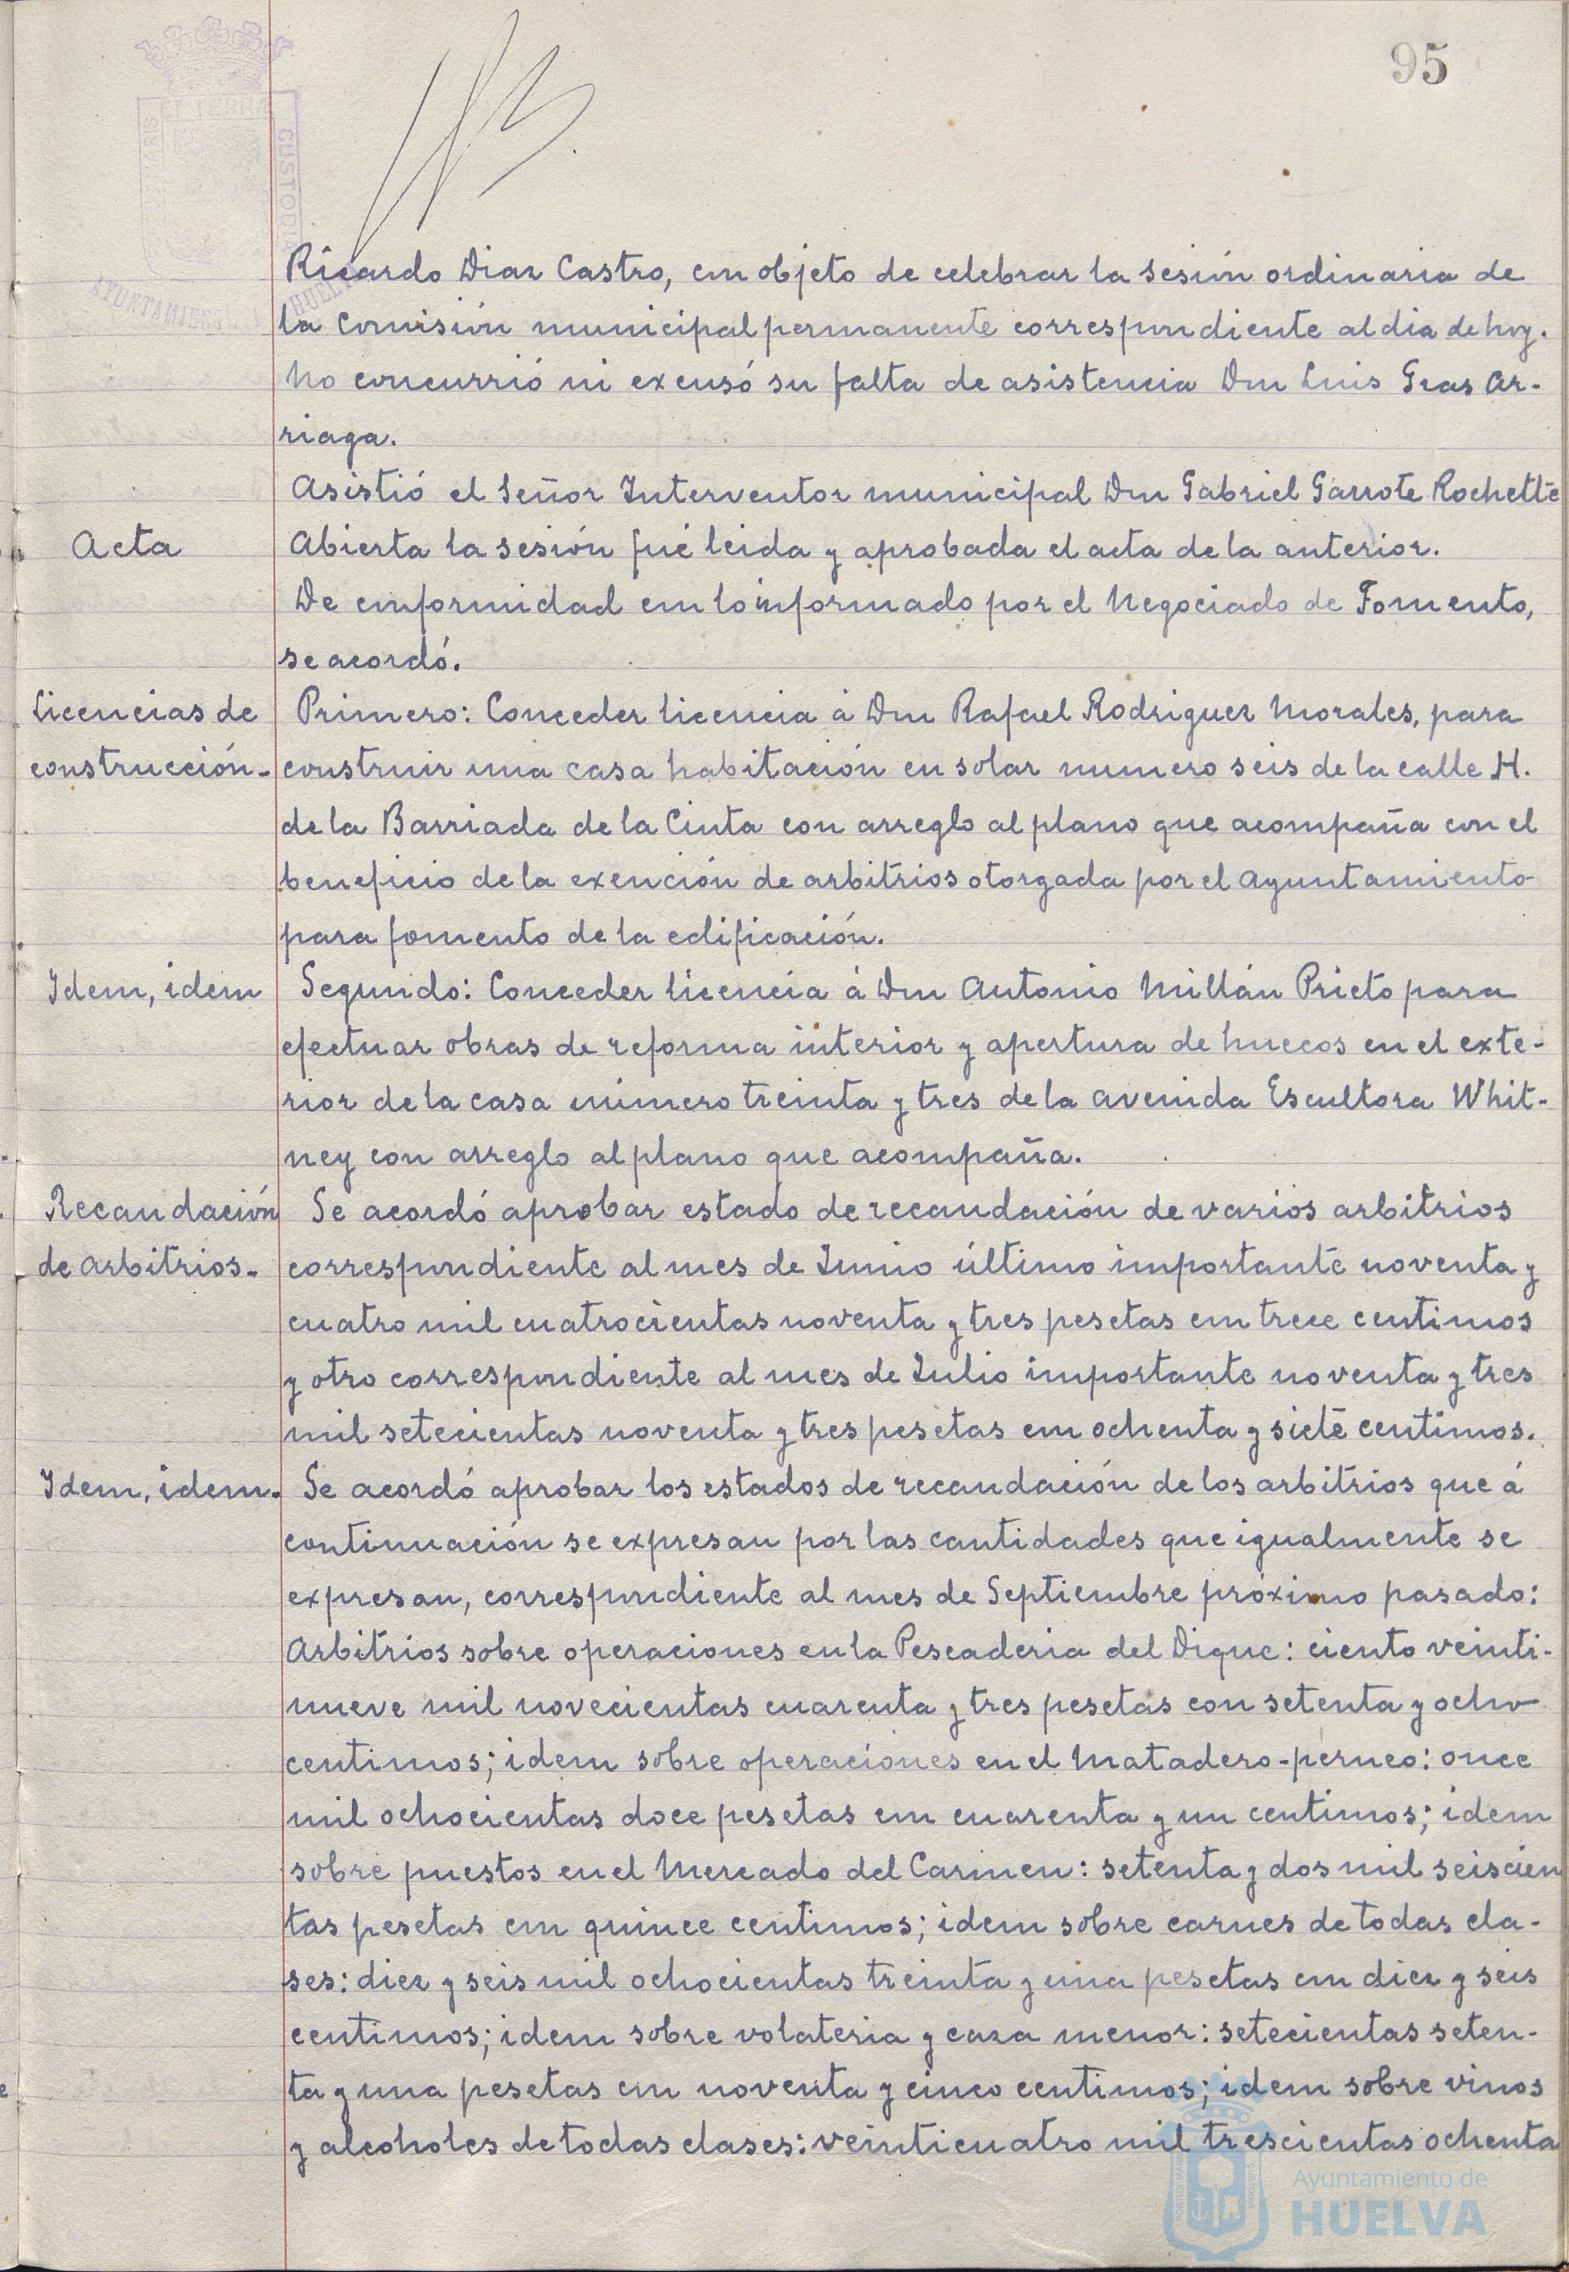 95
PORTUS MARIS
ET TERRAE
CUSTODIA
AYUNTAMIENTO
HUELVA
Ricardo Diaz Castro, con objeto de celebrar la sesión ordinaria de
la Comisión municipal permanente correspondiente al dia de hoy.
No concurrió ni excusó su falta de asistencia Don Luis Gras Ar-
riaga.
Asistió el Señor Interventor municipal Don Gabriel Garrote Rochette
Acta
Abierta la sesión fué leida y aprobada el acta de la anterior.
De conformidad con lo informado por el Negociado de Fomento,
se acordó.
Licencias de
construcción-
Primero: Conceder licencia á Don Rafael Rodriguez Morales, para
construir una casa habitación en solar numero seis de la calle H.
de la Barriada de la Cinta con arreglo al plano que acompaña con el
beneficio de la exención de arbitrios otorgada por el Ayuntamiento
para fomento de la edificación.
Idem, idem
Segundo: Conceder licencia á Don Antonio Millán Prieto para
efectuar obras de reforma interior y apertura de huecos en el exte-
rior de la casa número treinta y tres de la avenida Escultora Whit-
ney con arreglo al plano que acompaña.
Recaudación
de arbitrios-
Se acordó aprobar estado de recaudación de varios arbitrios
correspondiente al mes de Junio último importante noventa y
cuatro mil cuatrocientas noventa y tres pesetas con trece centimos
y otro correspondiente al mes de Julio importante noventa y tres
mil setecientas noventa y tres pesetas con ochenta y siete centimos.
Idem, idem.
Se acordó aprobar los estados de recaudación de los arbitrios que á
continuación se expresan por las cantidades que igualmente se
expresan, correspondiente al mes de Septiembre próximo pasado:
Arbitrios sobre operaciones en la Pescaderia del Dique: ciento veinti-
nueve mil novecientas cuarenta y tres pesetas con setenta y ocho
centimos; idem sobre operaciones en el Matadero-perneo: once
mil ochocientas doce pesetas con cuarenta y un centimos; idem
sobre puestos en el Mercado del Carmen: setenta y dos mil seiscien
tas pesetas con quince centimos; idem sobre carnes de todas cla-
ses: diez y seis mil ochocientas treinta y una pesetas con diez y seis
centimos; idem sobre volateria y caza menor: setecientas seten-
ta y una pesetas con noventa y cinco centimos; idem sobre vinos
y alcoholes de todas clases: veinticuatro mil trescientas ochenta
Ayuntamiento de
HUELVA